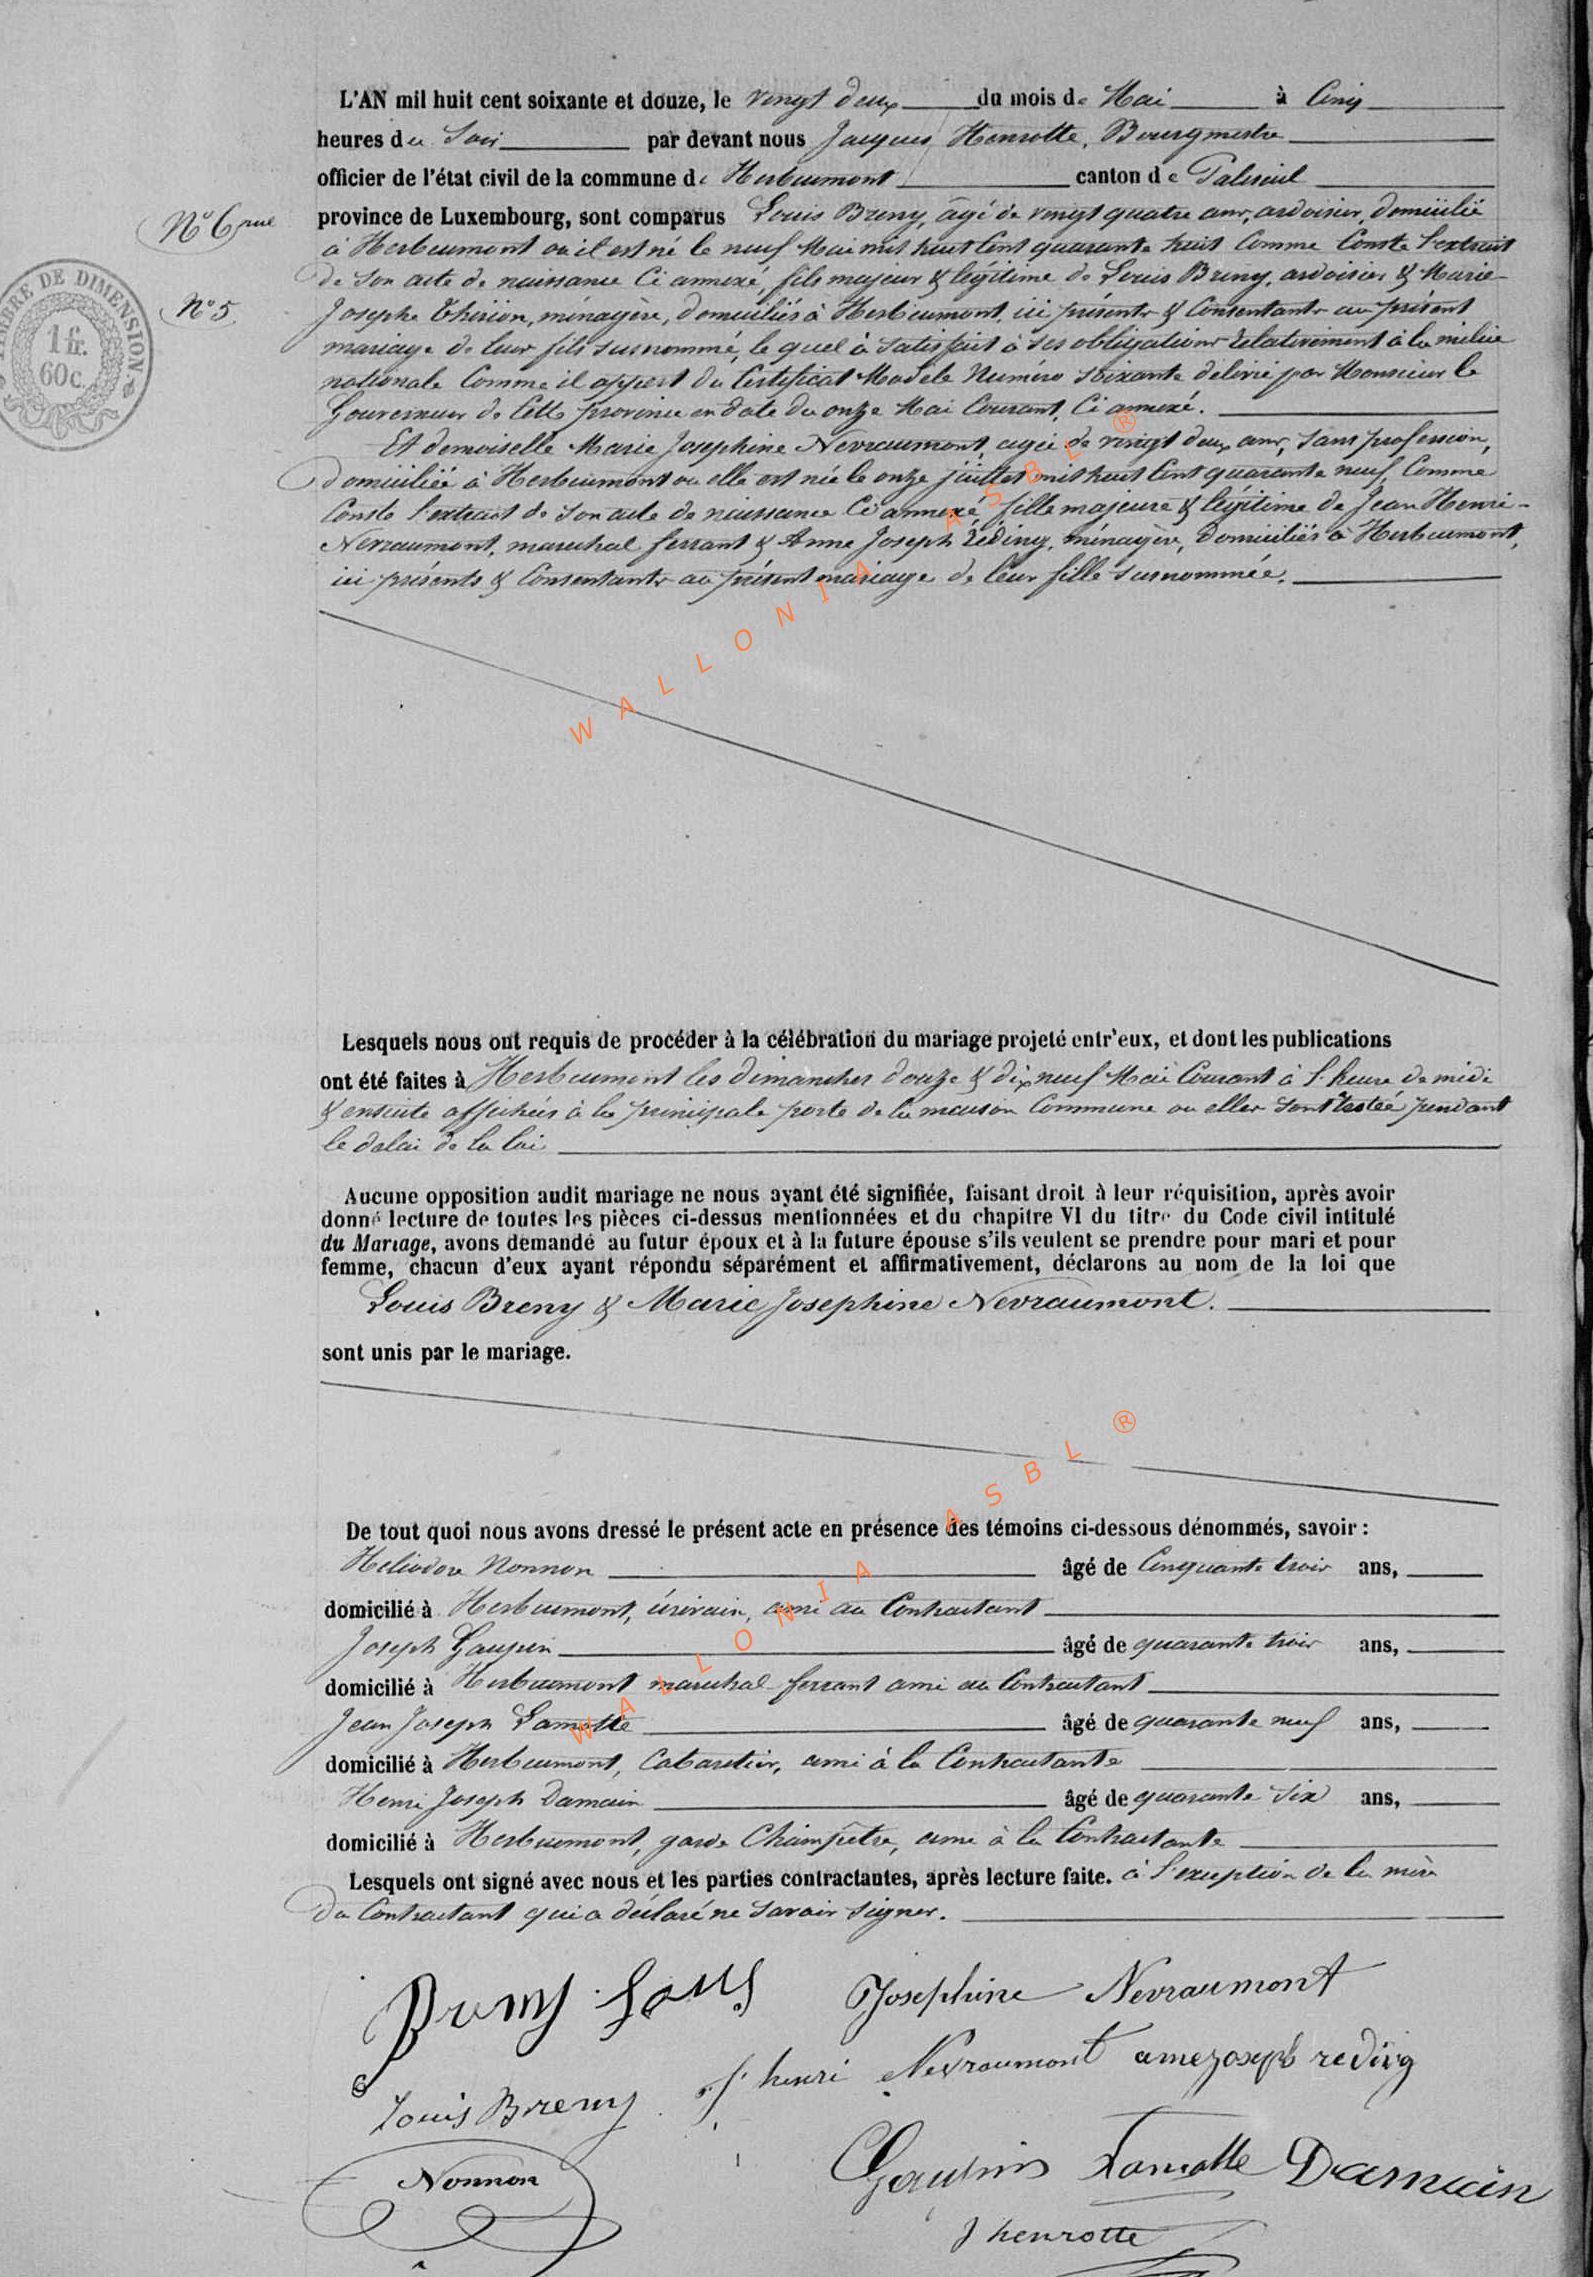 L'AN mil huit cent soixante et douze, le vingt deux du mois de Mai à Cinq
heures du Soir par devant nous Jacques Henrotte, Bourgmestre
officier de l'état civil de la commune de Herbeumont canton de Paliseul
N° 6
province de Luxembourg, sont comparus Louis Breny, âgé de vingt quatre ans, ardoisier, domicilié
à Herbeumont où il est né le neuf Mai mil huit Cent quarante huit Comme Conste l'extrait
TIMBRE DE DIMENSION
1 fr.
60c.
de Son acte de naissance Ci annexé, fils majeur & légitime de Louis Breny, ardoisier & Marie-
N° 5
Josephe Thirion, ménagère, domiciliés à Herbeumont, ici présents & Consentants au présent
mariage de leur fils susnommé, le quel à Satisfait à Ses obligations relativement à la milice
nationale Comme il appert du Certificat Modèle Numéro Soixante délivré par Monsieur le
Gouverneur de Cette province en date du onze Mai Courant, Ci annexé.
Et demoiselle Marie Josephine Nevraumont, agée de vingt deux ans, Sans profession,
domiciliée à Herbeumont ou elle est née le onze juillet mil huit Cent quarante neuf, Comme
Conste l'extrait de Son acte de naissance Ci annexé, fille majeure & légitime de Jean Henri-
Nevraumont, marechal ferrant & Anne Joseph Réding, ménagère, domiciliés à Herbeumont,
ici présents & Consentants au présent mariage de leur fille Susnommée.
WALLONIA ASBL ®
Lesquels nous ont requis de procéder à la célébration du mariage projeté entr'eux, et dont les publications
ont été faites à Herbeumont les dimanches douze & dix neuf Mai Courant à l'heure de midi
& ensuite affichées à la principale porte de la maison Commune ou elles Sont restée pendant
le delai de la loi
Aucune opposition audit mariage ne nous ayant été signifiée, faisant droit à leur réquisition, après avoir
donné lecture de toutes les pièces ci-dessus mentionnées et du chapitre VI du titre du Code civil intitulé
du Mariage, avons demandé au futur époux et à la future épouse s'ils veulent se prendre pour mari et pour
femme, chacun d'eux ayant répondu séparément et affirmativement, déclarons au nom de la loi que
Louis Breny & Marie Josephine Nevraumont.
sont unis par le mariage.
WALLONIA ASBL ®
De tout quoi nous avons dressé le présent acte en présence des témoins ci-dessous dénommés, savoir :
Héliodore Nonnon âgé de Cinquante trois ans,
domicilié à Herbeumont, écrivain, ami au Contractant
Joseph Gaupin âgé de quarante trois ans,
domicilié à Herbeumont marechal ferrant ami au Contractant
Jean Joseph Lamotte âgé de quarante neuf ans,
domicilié à Herbeumont, Cabaretier, ami à la Contractante
Henri Joseph Damain âgé de quarante Six ans,
domicilié à Herbeumont, garde Champêtre, ami à la Contractante
Lesquels ont signé avec nous et les parties contractantes, après lecture faite. à l'exception de la mère
du Contractant qui a déclaré ne Savoir Signer.
Breny Louis Josephine Nevraumont
Louis Breny J henri Nevraumont anne joseph reding
Nonnon Gaupin Lamotte Damain
J henrotte